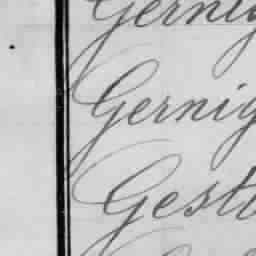 Gernig
Gernig
Gest